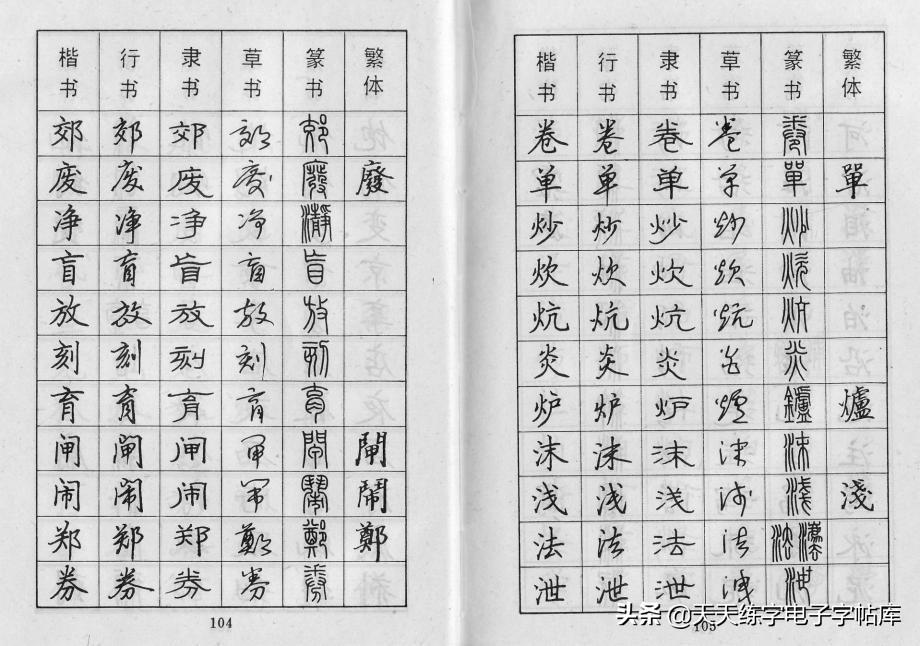 楷书 行书 隶书 草书 篆书 繁体
郊 郊 郊 郊 郊
废 废 废 废 廢 廢
净 净 净 净 瀞
盲 盲 盲 盲 盲
放 放 放 放 放
刻 刻 刻 刻 刻
育 育 育 育 育
闸 闸 闸 闸 閘 閘
闹 闹 闹 闹 鬧 鬧
郑 郑 郑 鄭 鄭 鄭
券 券 券 券 券
104
楷书 行书 隶书 草书 篆书 繁体
卷 卷 卷 卷 卷
单 单 单 单 單 單
炒 炒 炒 炒 炒
炊 炊 炊 炊 炊
炕 炕 炕 炕 炕
炎 炎 炎 炎 炎
炉 炉 炉 炉 鑪 爐
沫 沫 沫 沫 沫
浅 浅 浅 浅 淺 淺
法 法 法 法 法 灋
泄 泄 泄 泄 泄
105
头条 @天天练字电子字帖库